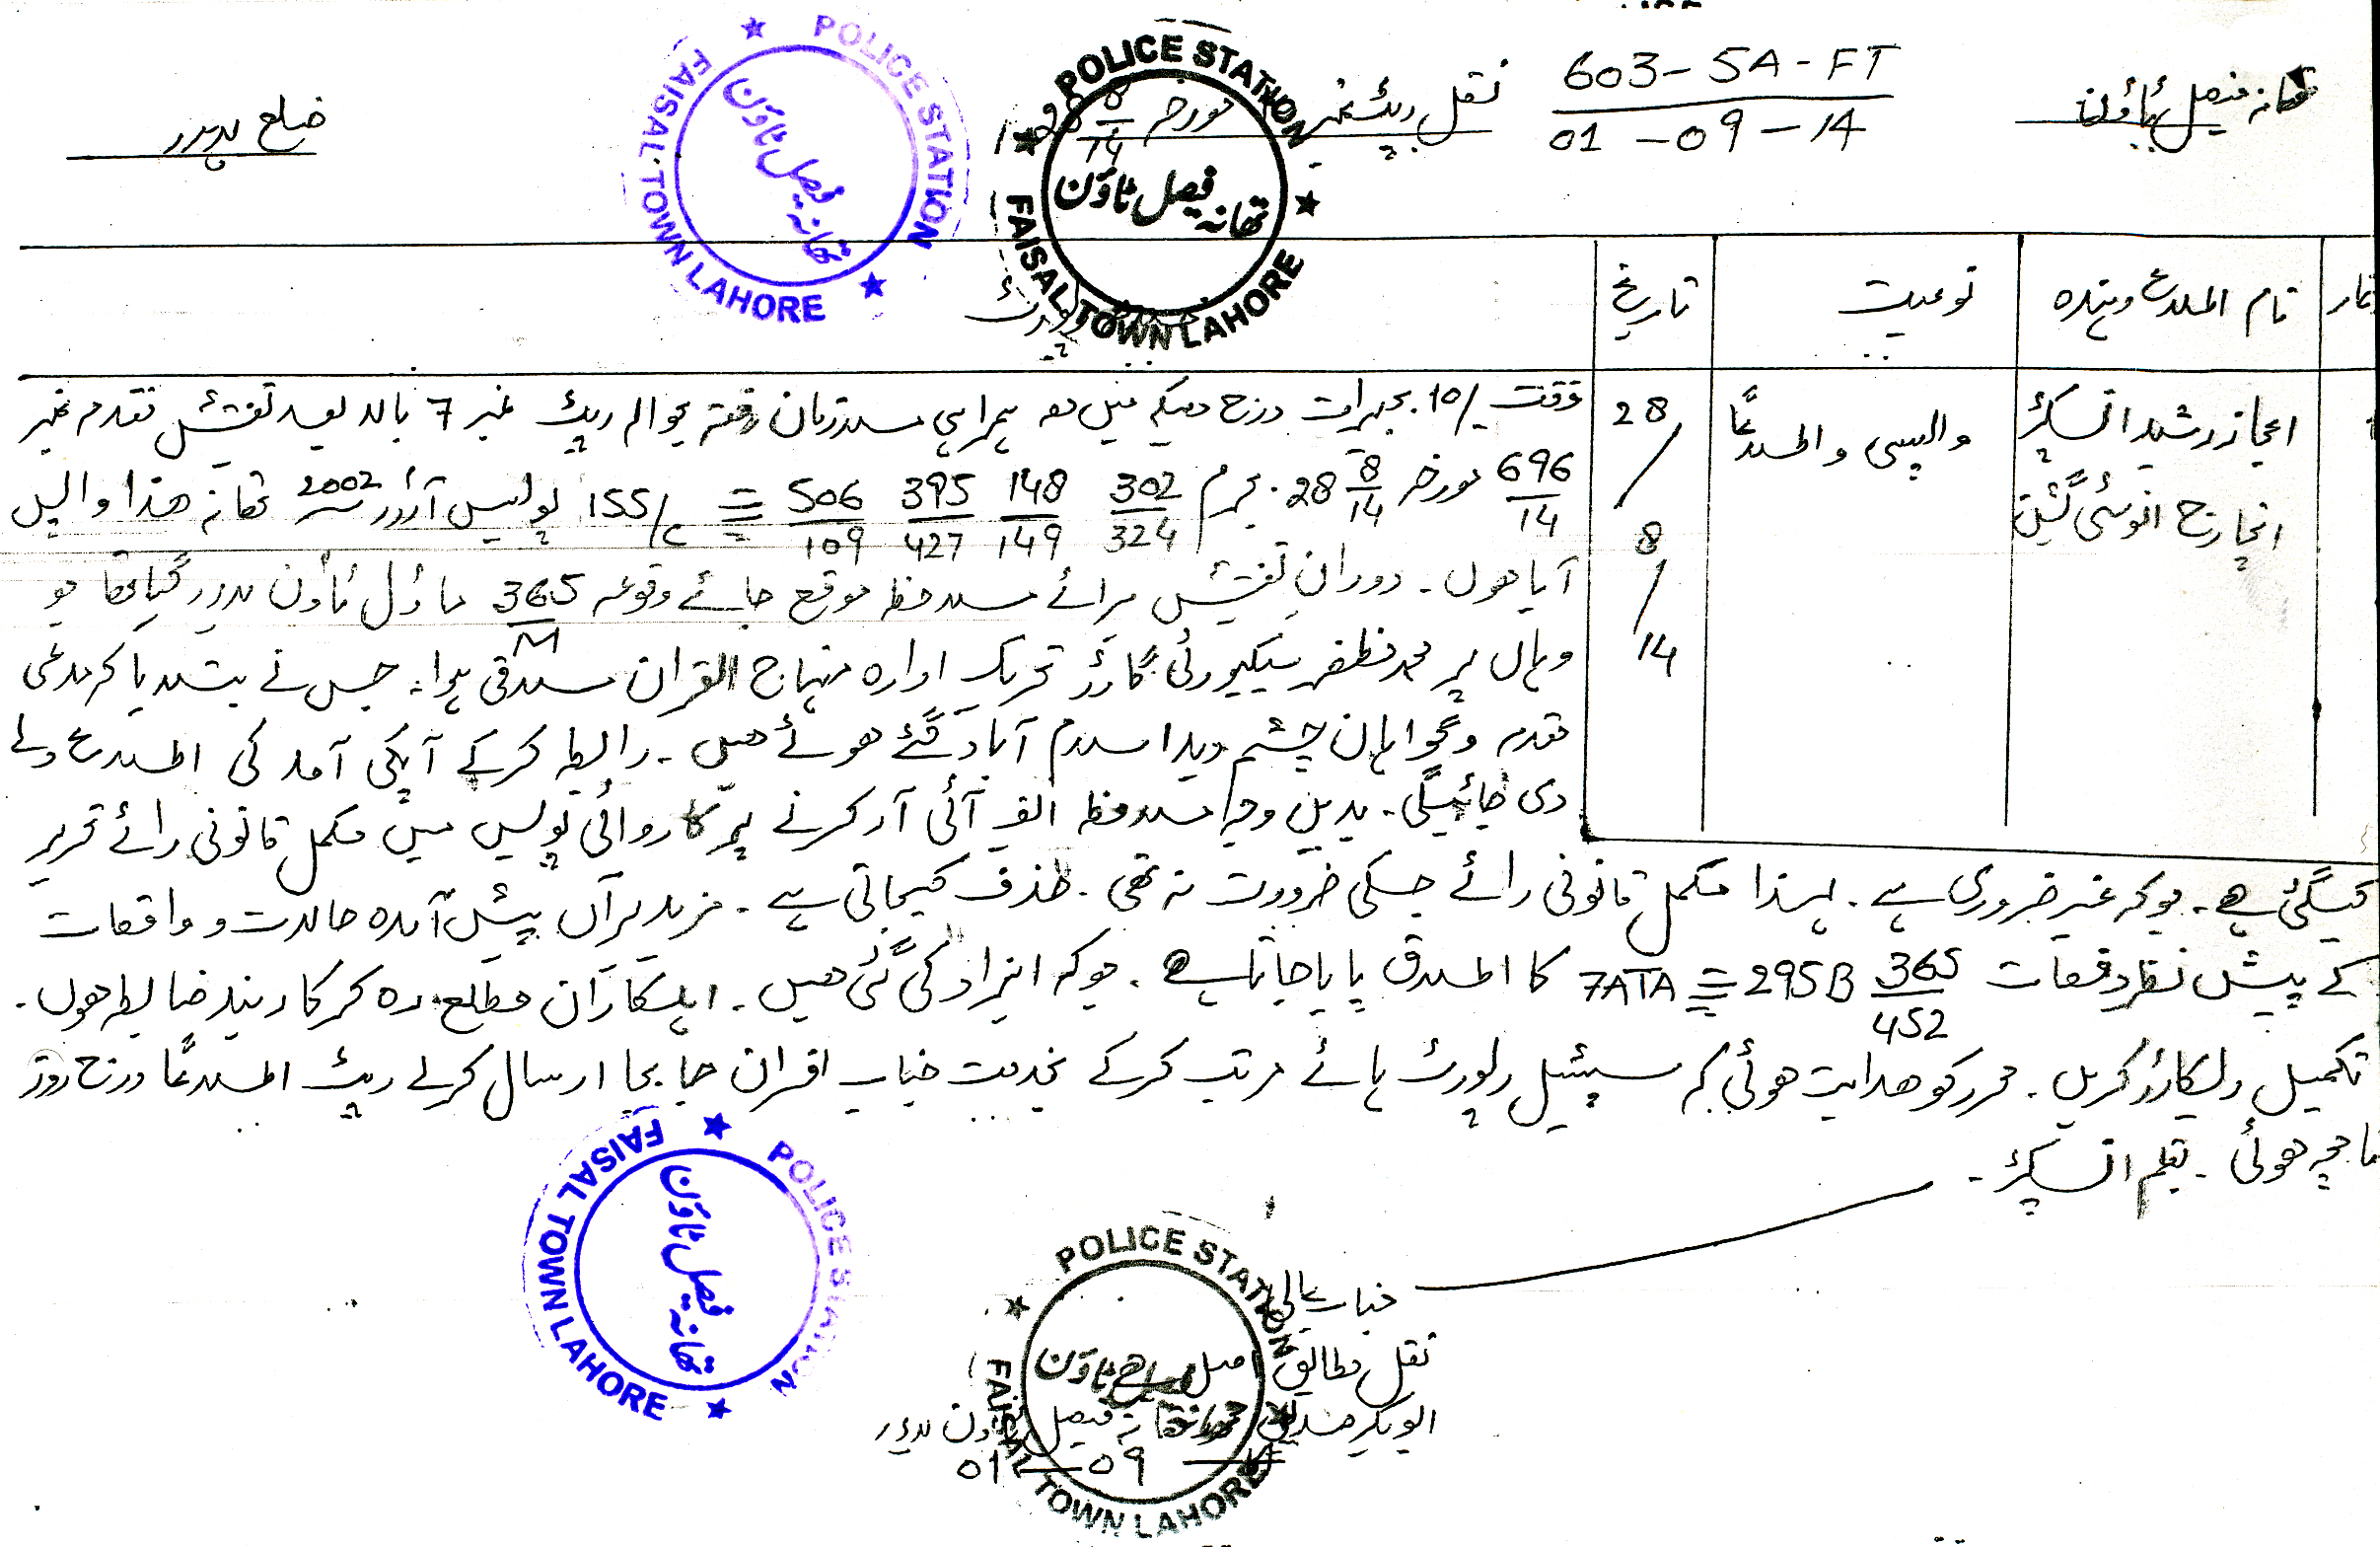 تھانہ فیصل ٹاؤن
603-5A-FT
01-09-14
نقل رپٹ نمبر مورخہ 28 8/14
ضلع لاہور
POLICE STATION FAISAL TOWN LAHORE
تھانہ فیصل ٹاؤن
POLICE STATION FAISAL TOWN LAHORE
تھانہ فیصل ٹاؤن
نام اطلاع دہندہ
نوعیت
تاریخ
اعجاز رشید انسپکٹر
انچارج انوسٹی گیشن
واپسی و اطلاعاً
28/8/14
وقت 10/- بجے رات درج ہے کہ میں معہ ہمراہی ملازمان رفتہ بحوالہ رپٹ نمبر 7 بالا بعد تفتیش مقدمہ نمبر
696/14 مورخہ 28 8/14 بجرم 302/324 148/149 395/427 506/109 ت پ 155/C پولیس آرڈر 2002 تھانہ ھذا واپس
آیا ھوں ۔ دوران تفتیش برائے ملاحظہ موقع جائے وقوعہ 365/M ماڈل ٹاؤن لاہور گیا تھا جو
وہاں پر محمد مظفر سیکیورٹی گارڈ تحریک ادارہ منہاج القران ملاقی ہوا ۔ جس نے بتلایا کہ مدعی
مقدمہ و گواہان چشم دید اسلام آباد گئے ھوئے ھیں ۔ رابطہ کرکے آپکی آمد کی اطلاع دے
دی جائیگی ۔ بدیں وجہ ملاحظہ ایف آئی آر کرنے پر کاروائی پولیس میں مکمل قانونی رائے تحریر
کیگئی ہے ۔ جو کہ غیر ضروری ہے ۔ لہذا مکمل قانونی رائے جسکی ضرورت نہ تھی ۔ حذف کیجاتی ہے ۔ مزید برآں پیش آمدہ حالات و واقعات
کے پیش نظر دفعات 365/452 295B ت پ 7ATA کا اطلاق پایا جاتا ہے ۔ جو کہ ایزاد کی گئی ھیں ۔ اہلکاران مطلع رہ کر کاربند ضابطہ ھوں ۔
تکمیل ریکارڈ کریں ۔ محرر کو ھدایت ھوئی کہ سپیشل رپورٹ ہائے مرتب کرکے بخدمت جناب افسران جابجا ارسال کرے رپٹ اطلاعاً درج روز
نامچہ ھوئی ۔ بقلم انسپکٹر ۔
جناب عالی
نقل مطابق اصل ہے
ابوبکر صدیق محرر تھانہ فیصل ٹاؤن لاہور
01-09-14
POLICE STATION FAISAL TOWN LAHORE
تھانہ فیصل ٹاؤن
POLICE STATION FAISAL TOWN LAHORE